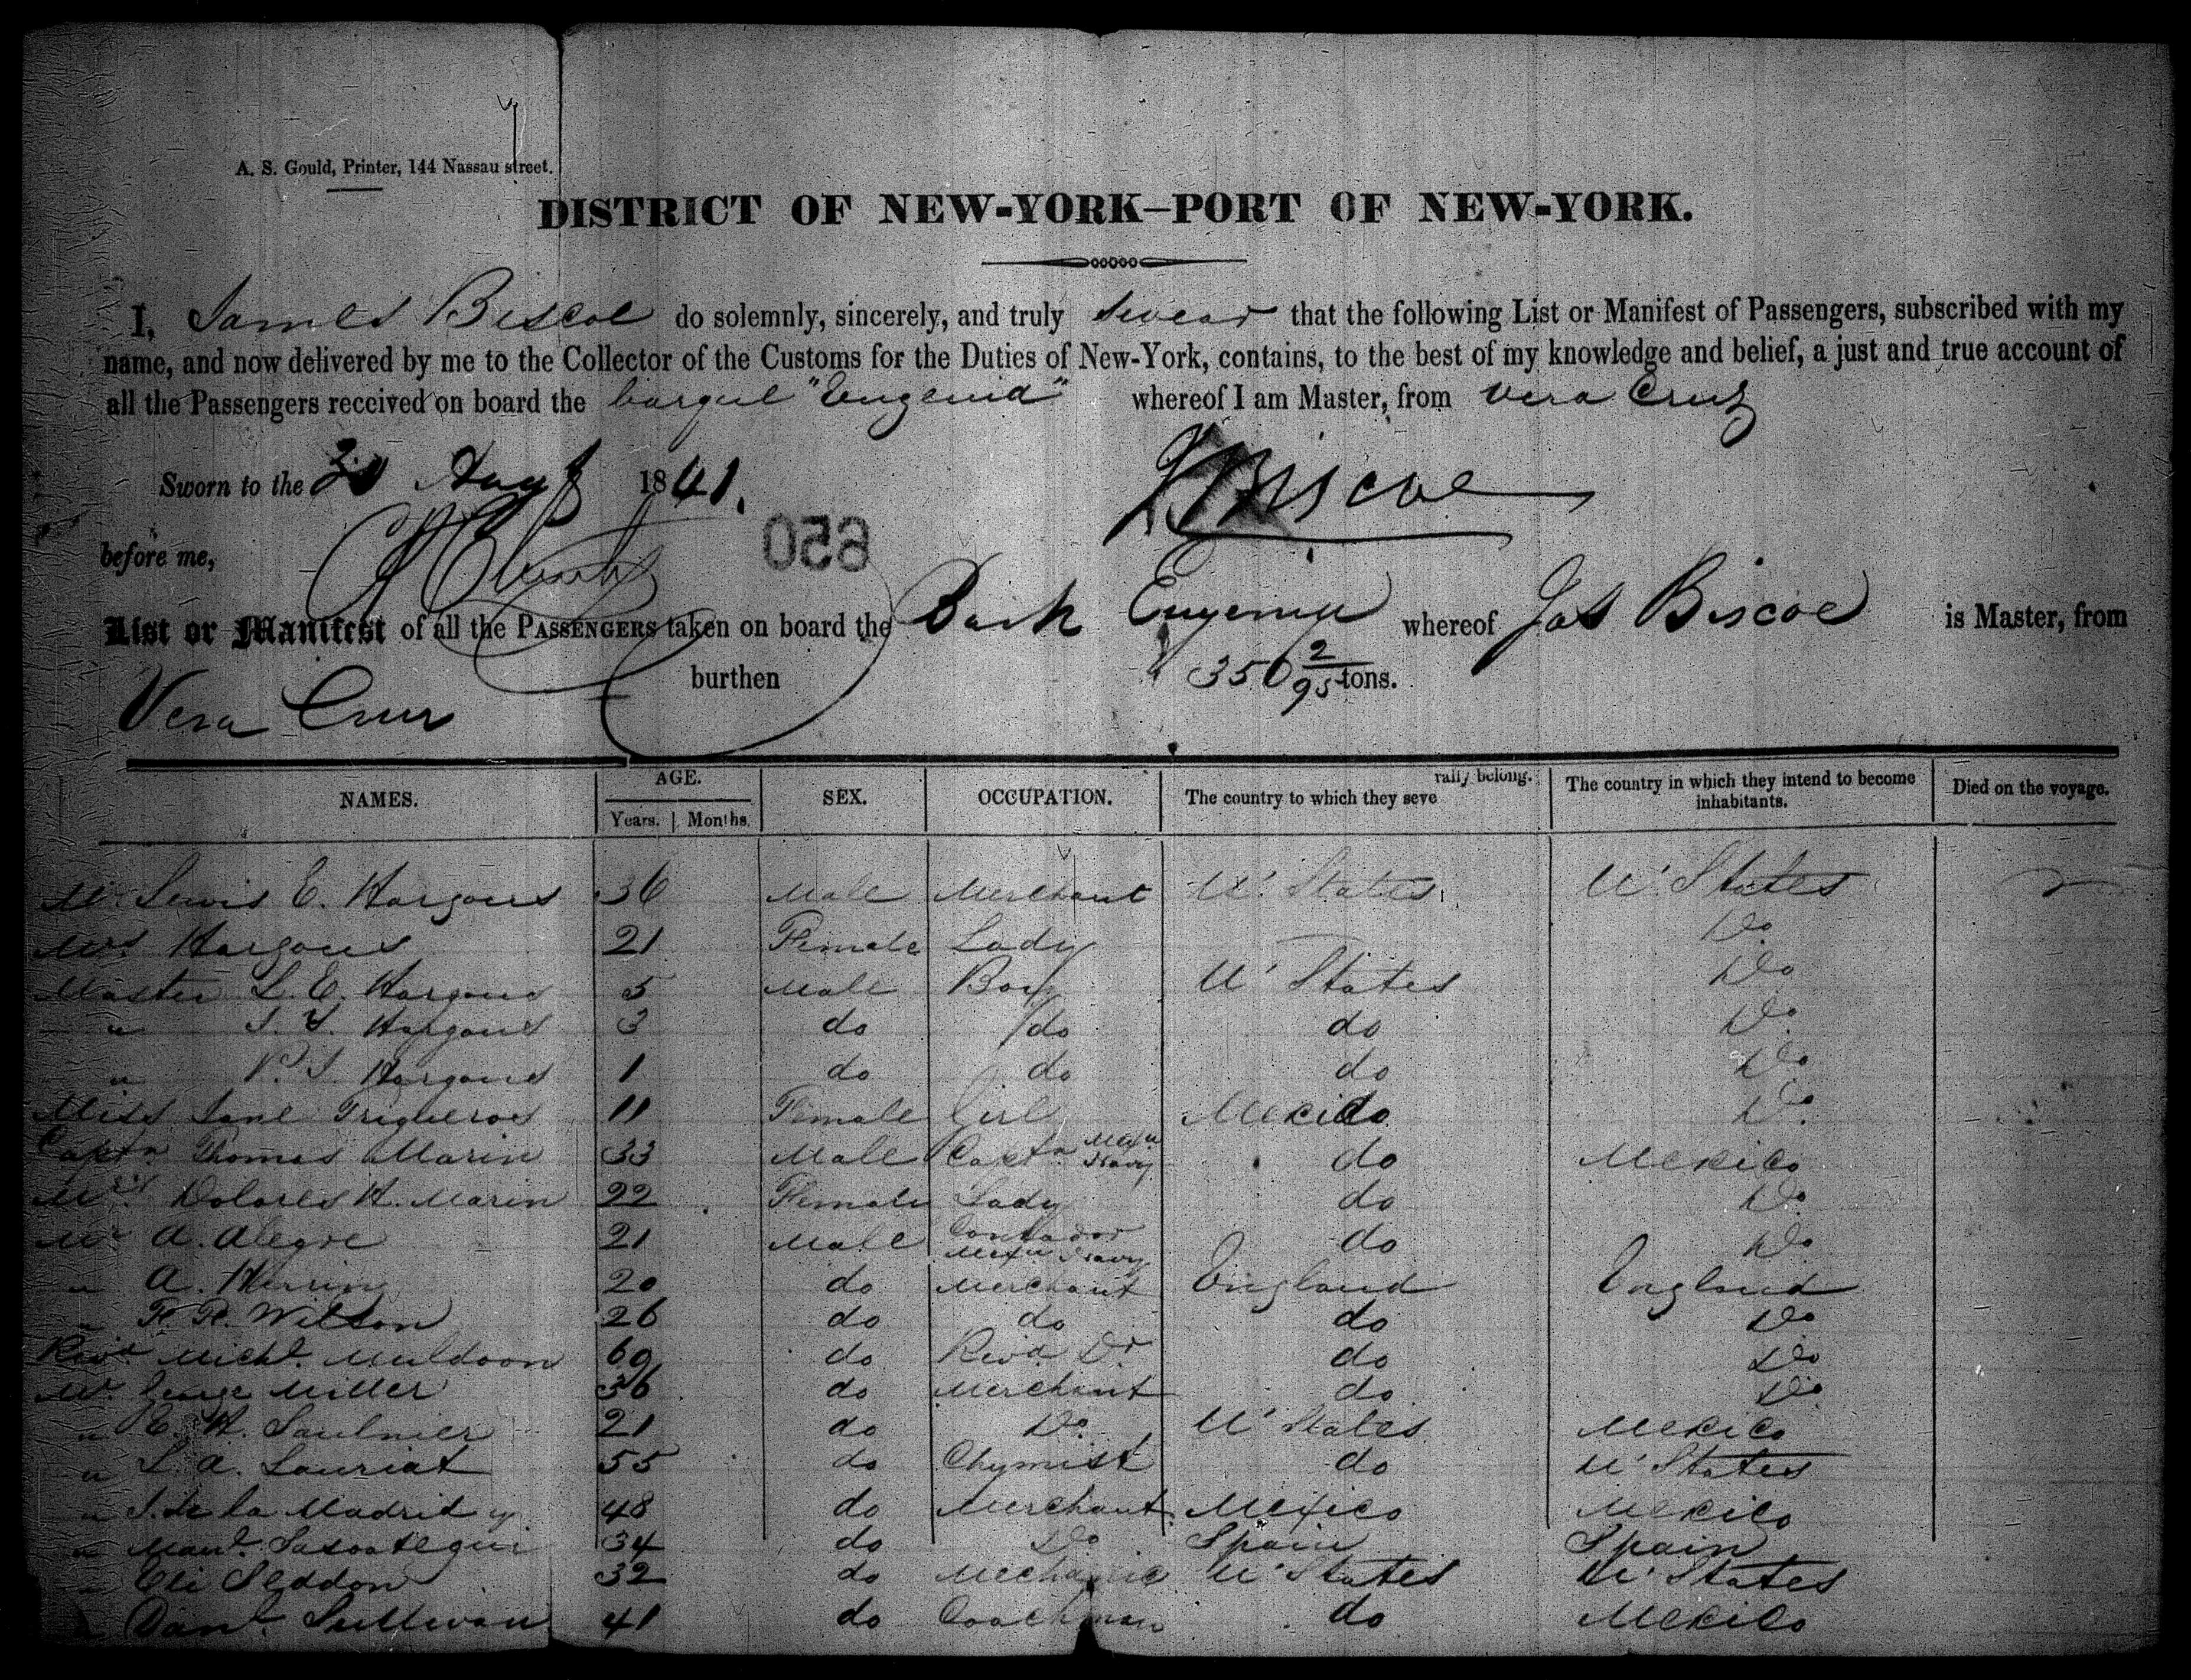 A. S. Gould, Printer, 144 Nassau street.
DISTRICT OF NEW-YORK–PORT OF NEW-YORK.
I, James Biscoe do solemnly, sincerely, and truly swear that the following List or Manifest of Passengers, subscribed with my
name, and now delivered by me to the Collector of the Customs for the Duties of New-York, contains, to the best of my knowledge and belief, a just and true account of
all the Passengers received on board the barque "Eugenia" whereof I am Master, from Vera Cruz
Sworn to the Augt 1841. J Biscoe
before me,
650
List or Manifest of all the PASSENGERS taken on board the Bark Eugenia whereof Jas Biscoe is Master, from
Vera Cruz burthen 350 2/95 tons.
NAMES. AGE. Years. Months. SEX. OCCUPATION. The country to which they severally belong. The country in which they intend to become inhabitants. Died on the voyage.
Mr. Lewis E. Hargous 36 Male Merchant U' States U' States
Mrs Hargous 21 Female Lady Do
Master L. E. Hargous 5 Male Boy U' States Do
" Hargous 3 do do do Do
" Hargous 1 do do do Do
Miss Jane Trigueros 11 Female Girl Mexico Do
Captn Thomas Marin 33 Male Captn Mexn Navy do Mexico
Mrs Dolores H. Marin 22 Female Lady do Do
Mr A. Alegre 21 Male Contador Mexn Navy do Do
" A. Herring 20 do Merchant England England
" Wilson 26 do do do Do
Revd Michl. Muldoon 60 do Revd Dr do Do
Mr. George Miller 36 do Merchant do Do
" E. H. Saulnier 21 do Do U' States Mexico
" L. A. Lauriat 55 do Chymist do U' States
" J. de la Madrid y 48 do Merchant Mexico Mexico
" Manl. 34 do Do Spain Spain
" Eli Seddon 32 do Mechanic U' States U' States
" Danl. Sullivan 41 do Coachman do Mexico